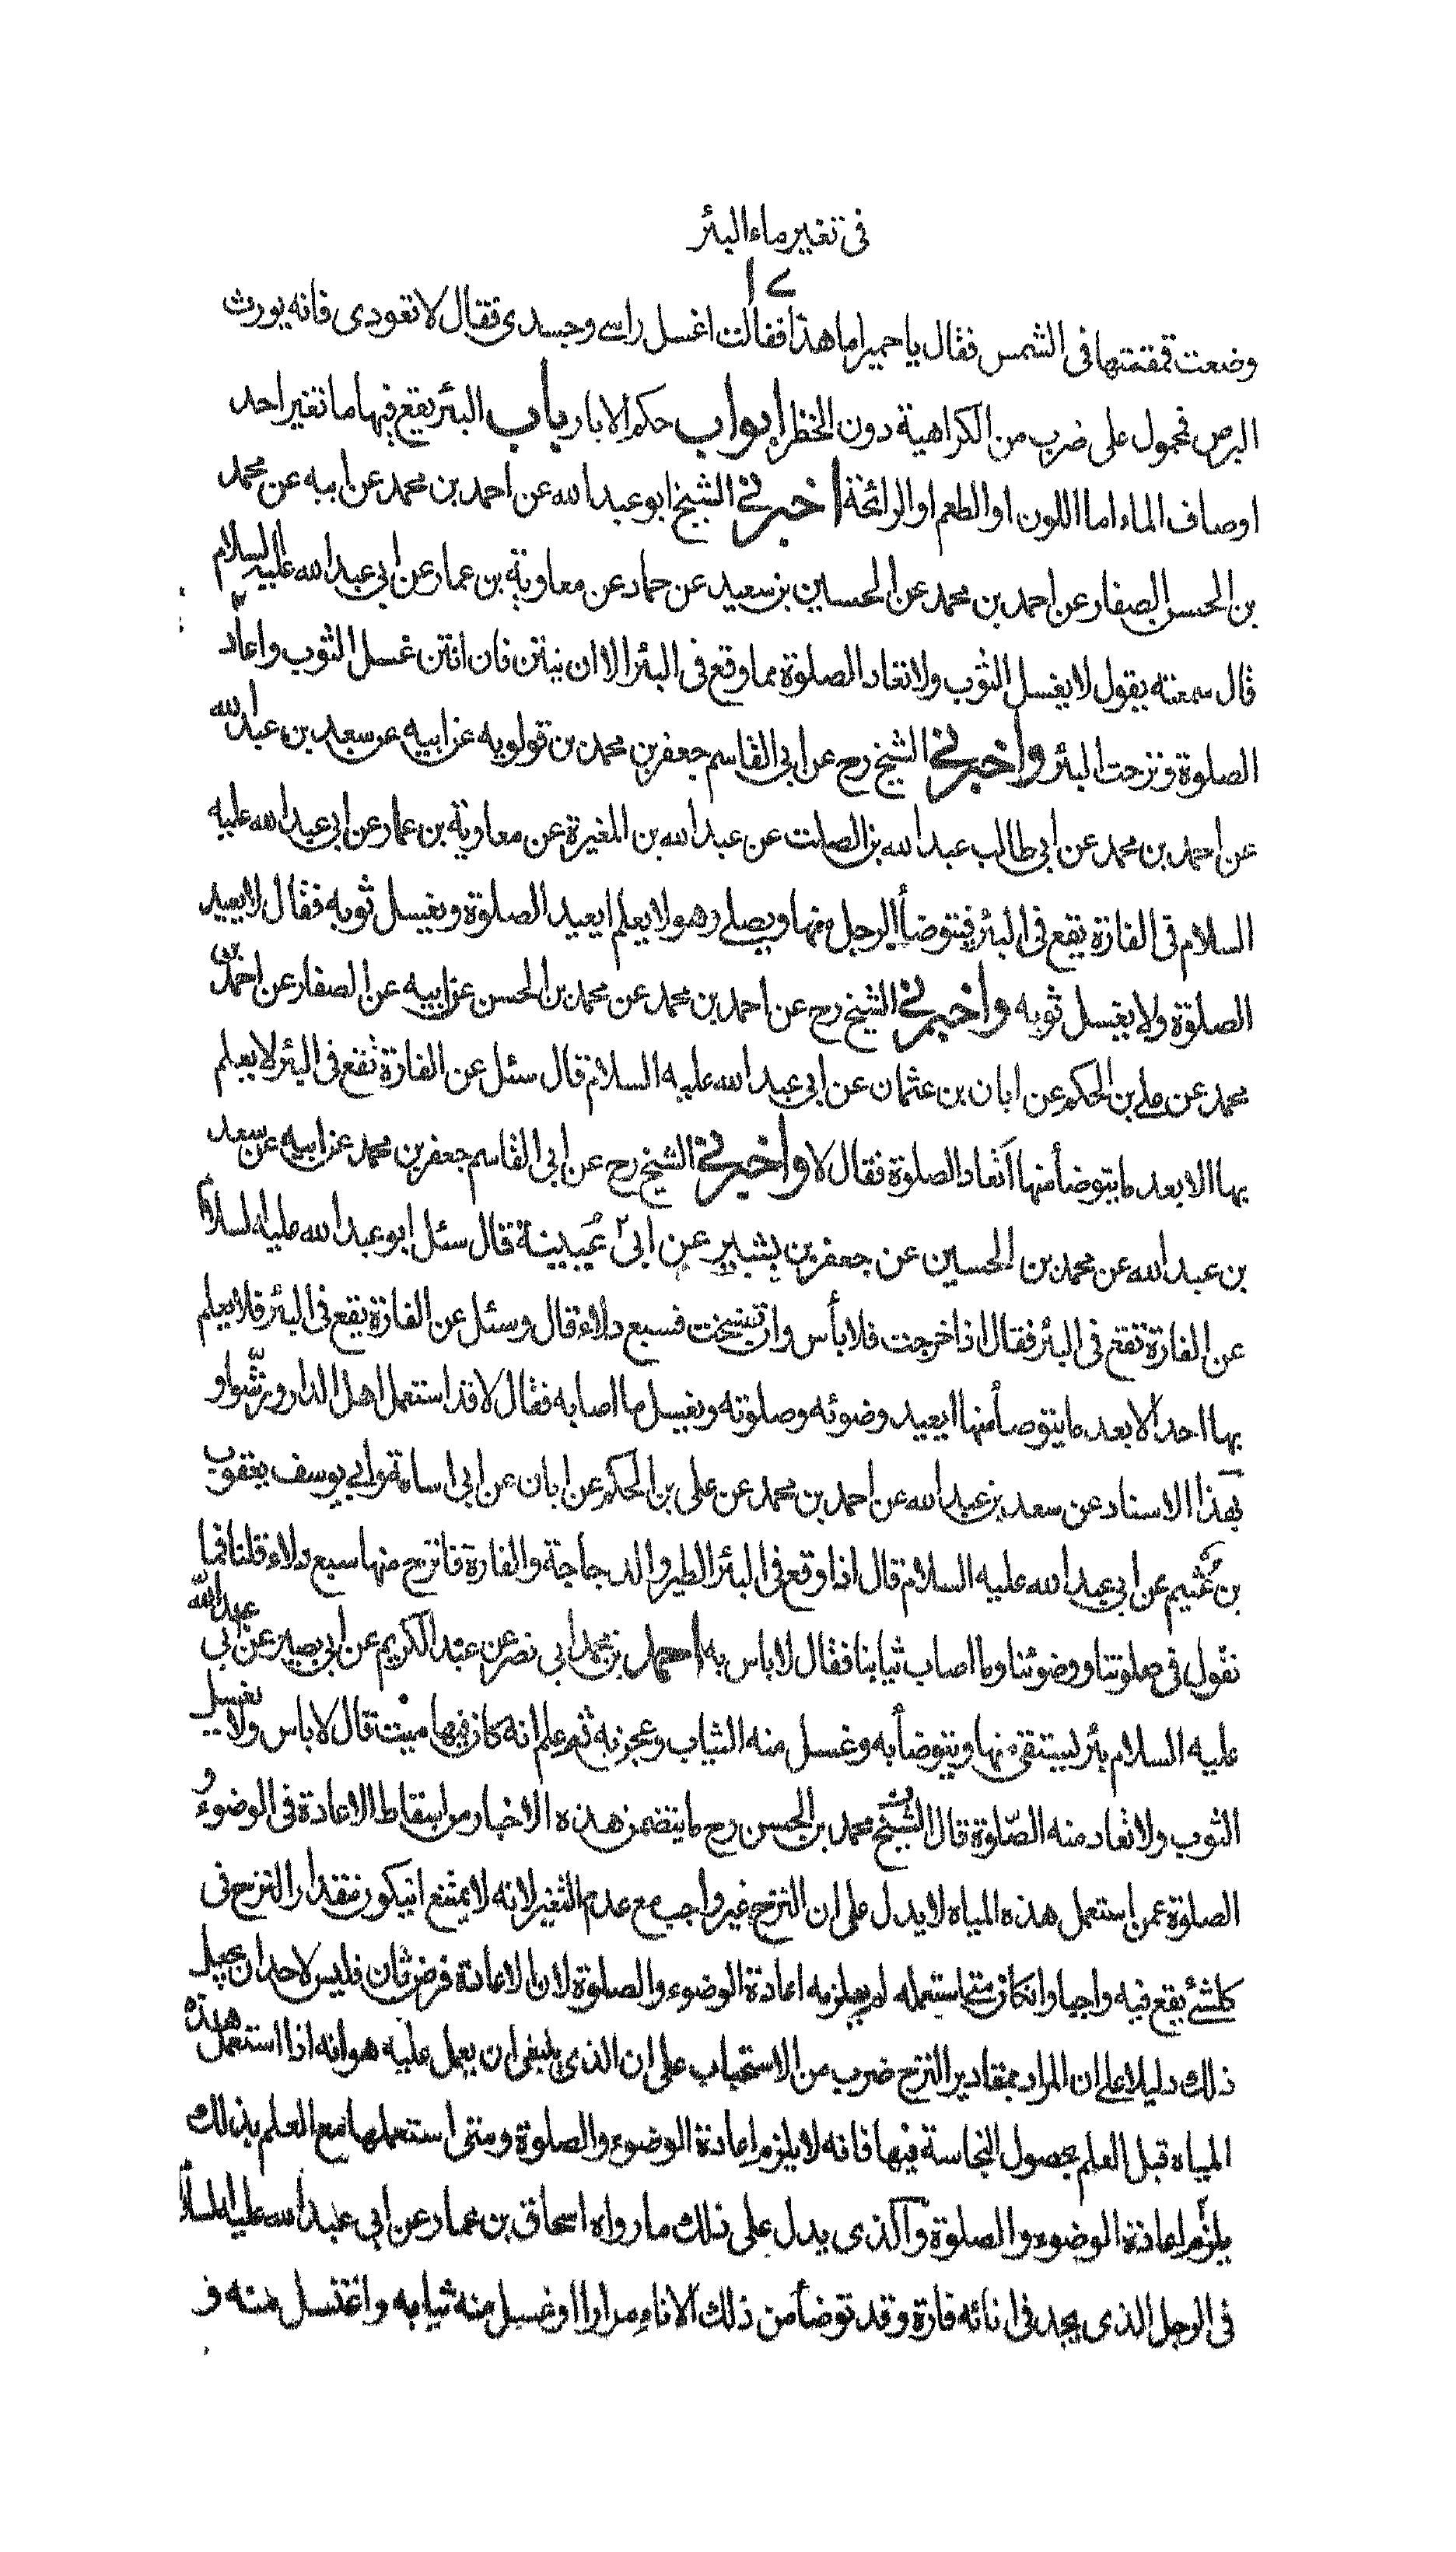 فى تغيير ماء البئر
١٢
وضعت قمقمتها فى الشمس فقال يا حميرا ما هذا فقالت اغسل راسى وجسدى فقال لا تعودى فانه يورث
البرص فمحمول على ضرب من الكراهية دون الحظر ابواب حكم الابار باب البئر يقع فيها ما تغير احد
اوصاف الماء اما اللون او الطعم او الرائحة اخبرنى الشيخ ابو عبد الله عن احمد بن محمد عن ابيه عن محمد
بن الحسن الصفار عن احمد بن محمد عن الحسين بن سعيد عن حماد عن معاوية بن عمار عن ابى عبد الله عليه السلام
قال سمعته يقول لا يغسل الثوب ولا تعاد الصلوة مما وقع فى البئر الا ان ينتن فان انتن غسل الثوب واعاد
الصلوة ونزحت البئر واخبرنى الشيخ رح عن ابى القاسم جعفر بن محمد بن قولويه عن ابيه عن سعد بن عبد الله
عن احمد بن محمد عن ابى طالب عبد الله بن الصلت عن عبد الله بن المغيرة عن معاوية بن عمار عن ابى عبد الله عليه
السلام فى الفارة يقع فى البئر فيتوضأ الرجل منها ويصلى وهو لا يعلم ايعيد الصلوة ويغسل ثوبه فقال لا يعيد
الصلوة ولا يغسل ثوبه واخبرنى الشيخ رح عن احمد بن محمد عن محمد بن الحسن عن ابيه عن الصفار عن احمد بن
محمد عن على بن الحكم عن ابان بن عثمان عن ابى عبد الله عليه السلام قال سئل عن الفارة تقع فى البئر لا يعلم
بها الا بعد ما يتوضأ منها اتعاد الصلوة فقال لا واخبرنى الشيخ رح عن ابى القاسم جعفر بن محمد عن ابيه عن سعد
بن عبد الله عن محمد بن الحسين عن جعفر بن بشير عن ابى عُيينة قال سئل ابو عبد الله عليه السلام
عن الفارة تقع فى البئر فقال اذا خرجت فلا بأس وان تفسخت فسبع دلاء قال وسئل عن الفارة يقع فى البئر فلا يعلم
بها احد الا بعد ما يتوضأ منها ايعيد وضوئه وصلوته ويغسل ما اصابه فقال لا قد استعمل اهل الدار ورشّوا و
بهذا الاسناد عن سعد بن عبد الله عن احمد بن محمد عن على بن الحكم عن ابان عن ابى اسامة وابى يوسف يعقوب
بن عُثيم عن ابى عبد الله عليه السلام قال اذا وقع فى البئر الطير والدجاجة والفارة فانزح منها سبع دلاء قلنا فما
تقول فى صلوتنا ووضوئنا وما اصاب ثيابنا فقال لا باس به احمد بن محمد ابى نصر عن عبد الكريم عن ابى بصير عن ابى عبد الله
عليه السلام بئر يستقى منها ويتوضأ به وغسل منه الثياب وعجن به ثم علم انه كان فيها ميت قال لا باس ولا يغسل
الثوب ولا تعاد منه الصّلوة قال الشيخ محمد بن الحسن رح ما يتضمن هذه الاخبار من اسقاط الاعادة فى الوضوء و
الصلوة عمن استعمل هذه المياه لا يدل على ان النزح غير واجب مع عدم التغير لانه لا يمتنع ان يكون مقدار النزح فى
كل شئ يقع فيه واجبا وان كان متى استعمله لم يلزمه اعادة الوضوء والصلوة لان الاعادة فرض ثان فليس لاحد ان يجعل
ذلك دليلا على ان المراد بمقادير النزح ضرب من الاستحباب على ان الذى ينبغى ان يعمل عليه هو انه اذا استعمل هذه
المياه قبل العلم بحصول النجاسة فيها فانه لا يلزم اعادة الوضوء والصلوة ومتى استعملها مع العلم بذلك
يلزم اعادة الوضوء والصلوة والذى يدل على ذلك ما رواه اسحاق بن عمار عن ابى عبد الله عليه السلام
فى الرجل الذى يجد فى انائه فارة وقد توضأ من ذلك الاناء مرارا او غسل منه ثيابه واغتسل منه و